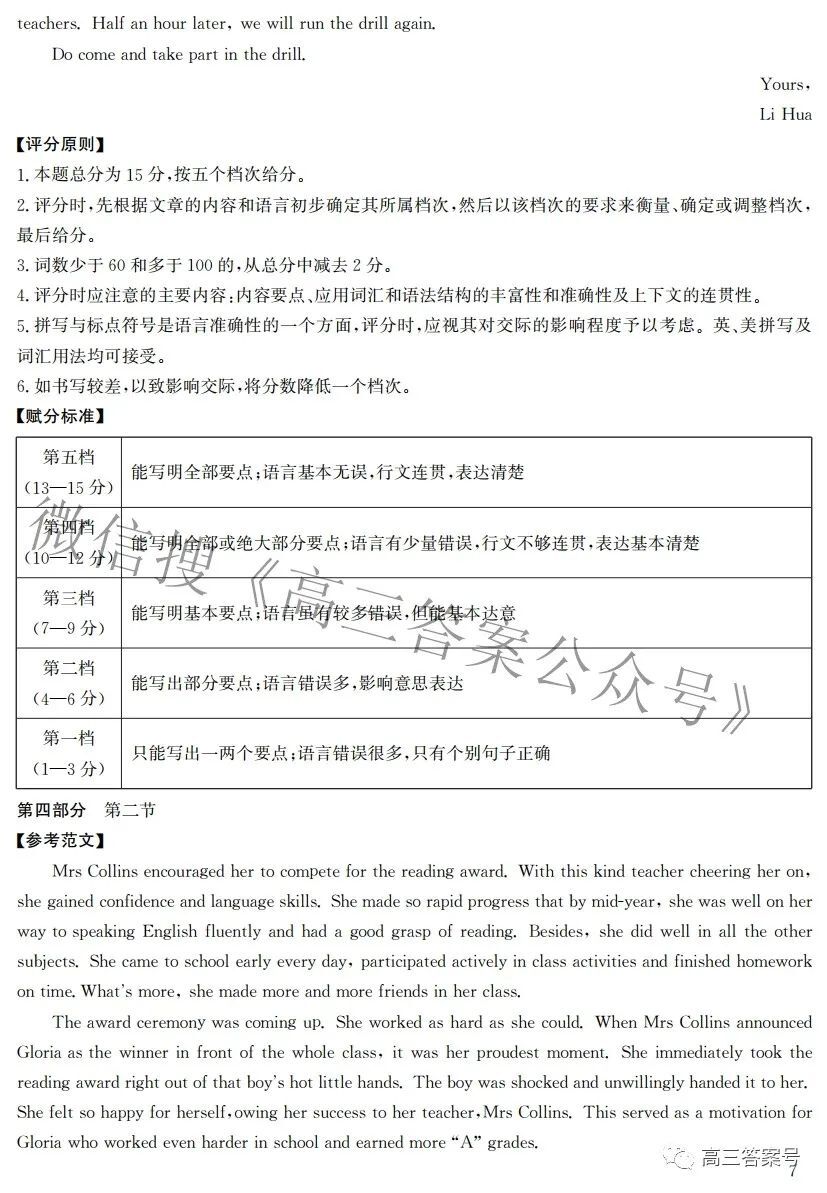 teachers. Half an hour later, we will run the drill again.
Do come and take part in the drill.
Yours,
Li Hua
【评分原则】
1. 本题总分为 15 分,按五个档次给分。
2. 评分时,先根据文章的内容和语言初步确定其所属档次,然后以该档次的要求来衡量、确定或调整档次,
最后给分。
3. 词数少于 60 和多于 100 的,从总分中减去 2 分。
4. 评分时应注意的主要内容:内容要点、应用词汇和语法结构的丰富性和准确性及上下文的连贯性。
5. 拼写与标点符号是语言准确性的一个方面,评分时,应视其对交际的影响程度予以考虑。英、美拼写及
词汇用法均可接受。
6. 如书写较差,以致影响交际,将分数降低一个档次。
【赋分标准】
第五档
(13—15 分)
能写明全部要点;语言基本无误,行文连贯,表达清楚
第四档
(10—12 分)
能写明全部或绝大部分要点;语言有少量错误,行文不够连贯,表达基本清楚
第三档
(7—9 分)
能写明基本要点;语言虽有较多错误,但能基本达意
第二档
(4—6 分)
能写出部分要点;语言错误多,影响意思表达
第一档
(1—3 分)
只能写出一两个要点;语言错误很多,只有个别句子正确
微信搜《高三答案公众号》
第四部分 第二节
【参考范文】
Mrs Collins encouraged her to compete for the reading award. With this kind teacher cheering her on,
she gained confidence and language skills. She made so rapid progress that by mid-year, she was well on her
way to speaking English fluently and had a good grasp of reading. Besides, she did well in all the other
subjects. She came to school early every day, participated actively in class activities and finished homework
on time. What's more, she made more and more friends in her class.
The award ceremony was coming up. She worked as hard as she could. When Mrs Collins announced
Gloria as the winner in front of the whole class, it was her proudest moment. She immediately took the
reading award right out of that boy's hot little hands. The boy was shocked and unwillingly handed it to her.
She felt so happy for herself, owing her success to her teacher, Mrs Collins. This served as a motivation for
Gloria who worked even harder in school and earned more “A” grades.
高三答案号
7